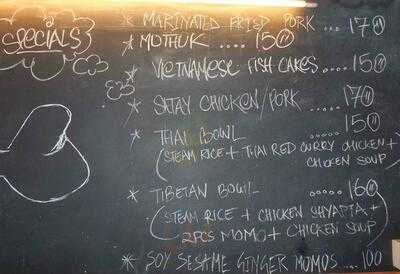 SPECIALS
* MARINATED FRIED PORK ... 170
* MOTHUK .... 150
* VIETNAMESE FISH CAKES..... 150
* SATAY CHICKEN/PORK ..... 170
* THAI BOWL ..... 150
(STEAM RICE + THAI RED CURRY CHICKEN +
CHICKEN SOUP)
* TIBETAN BOWL ..... 160
(STEAM RICE + CHICKEN SHYAPTA +
2PCS MOMO + CHICKEN SOUP)
* SOY SESAME GINGER MOMOS ... 100